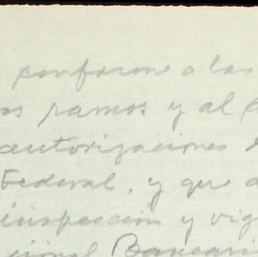 conforme a las
os ramos y al
autorizaciones
Federal, y que
inspección y vig
cional Bancari